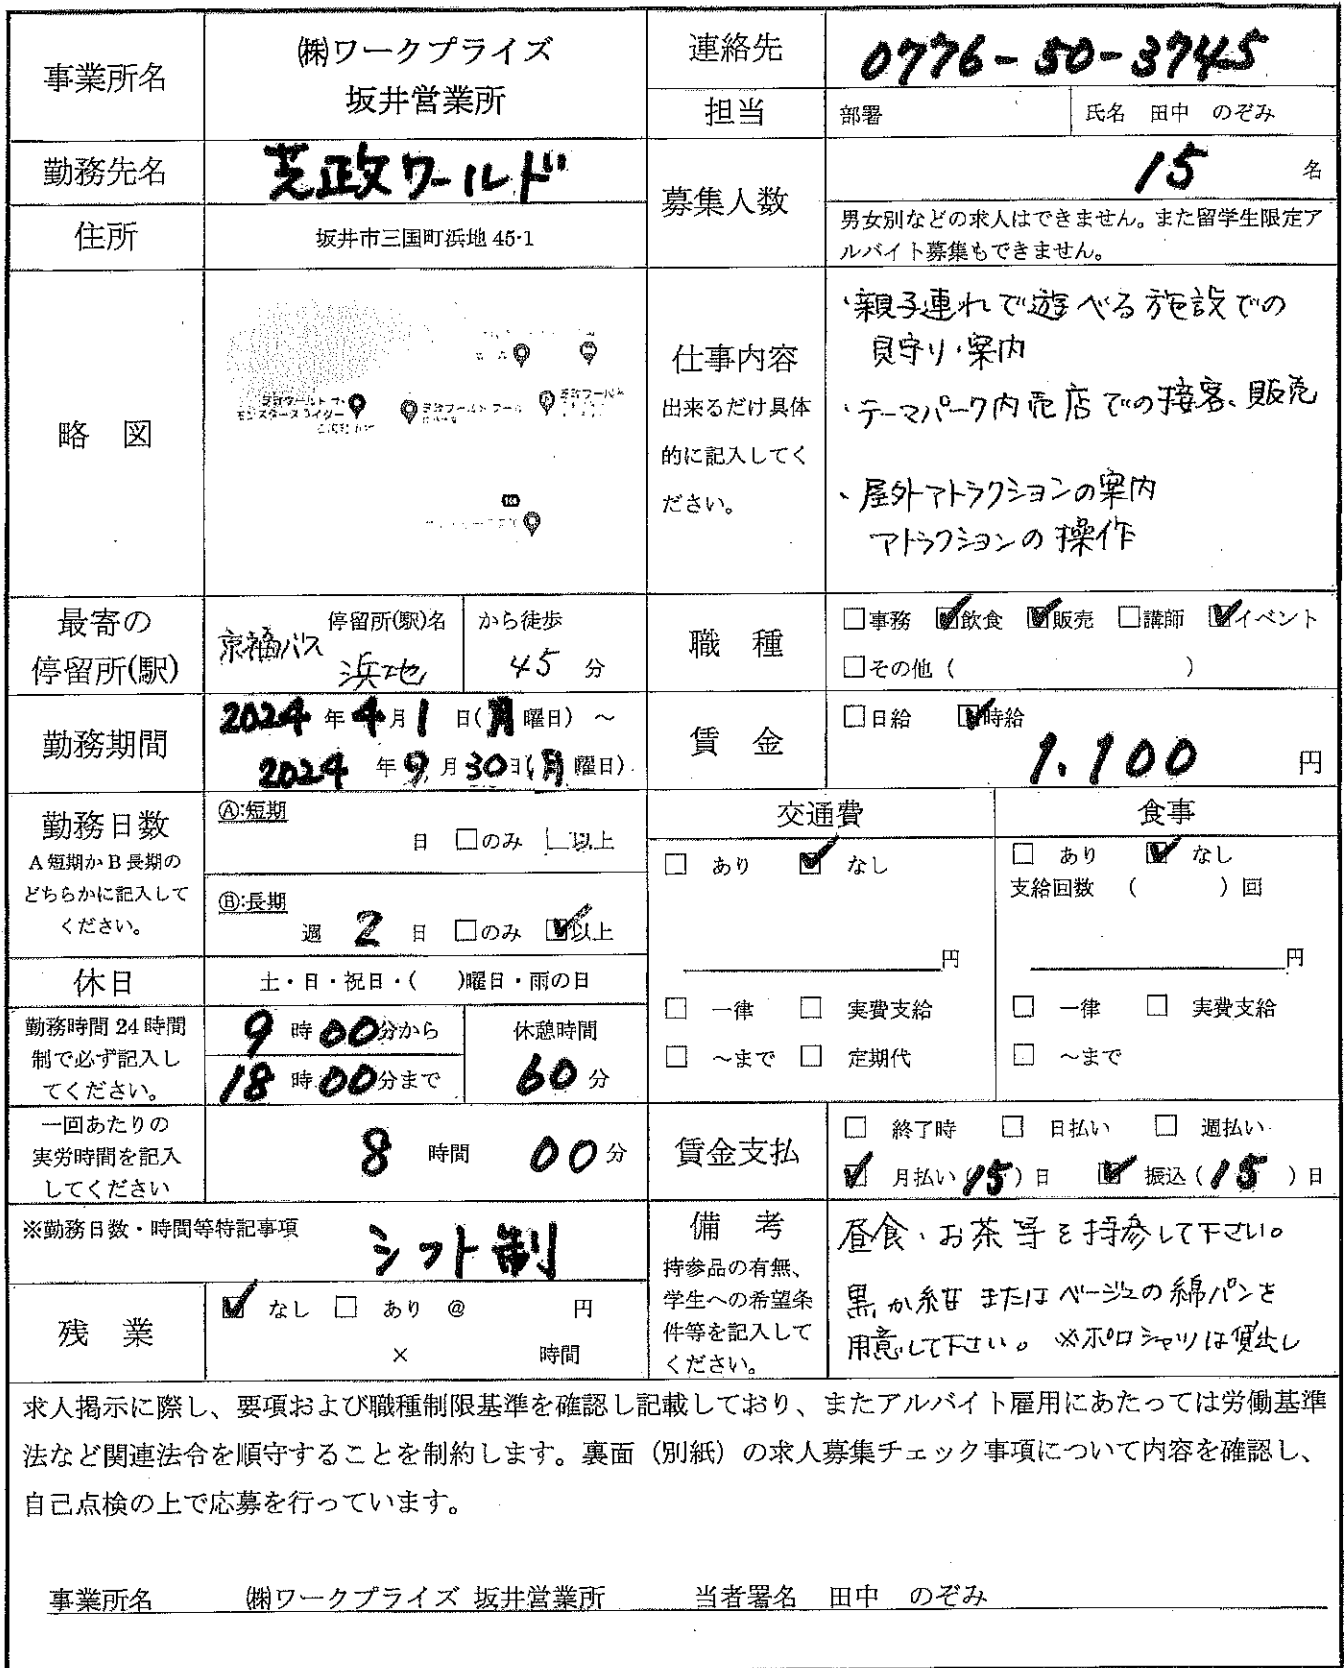 事業所名
㈱ワークプライズ
坂井営業所
連絡先
0776-50-3745
担当
部署
氏名 田中 のぞみ
勤務先名
芝政ワールド
募集人数
15 名
男女別などの求人はできません。また留学生限定ア
ルバイト募集もできません。
住所
坂井市三国町浜地 45-1
略 図
仕事内容
出来るだけ具体
的に記入してく
ださい。
・親子連れで遊べる施設での
見守り・案内
・テーマパーク内売店での接客、販売
・屋外アトラクションの案内
アトラクションの操作
最寄の
停留所(駅)
京福バス
停留所(駅)名
浜地
から徒歩
45 分
職 種
□事務 ☑飲食 ☑販売 □講師 ☑イベント
□その他 ( )
勤務期間
2024 年 4 月 1 日(月 曜日) ~
2024 年 9 月 30 日(月 曜日)
賃 金
□日給 ☑時給
1.100 円
勤務日数
A 短期か B 長期の
どちらかに記入して
ください。
Ⓐ:短期
日 □のみ □以上
Ⓑ:長期
週 2 日 □のみ ☑以上
交通費
□ あり ☑ なし
円
□ 一律 □ 実費支給
□ ~まで □ 定期代
食事
□ あり ☑ なし
支給回数 ( ) 回
円
□ 一律 □ 実費支給
□ ~まで
休日
土・日・祝日・( )曜日・雨の日
勤務時間 24 時間
制で必ず記入し
てください。
9 時 00 分から
18 時 00 分まで
休憩時間
60 分
一回あたりの
実労時間を記入
してください
8 時間 00 分
賃金支払
□ 終了時 □ 日払い □ 週払い
☑ 月払い (15) 日 ☑ 振込 (15) 日
※勤務日数・時間等特記事項
シフト制
残 業
☑ なし □ あり @ 円
× 時間
備 考
持参品の有無、
学生への希望条
件等を記入して
ください。
昼食・お茶等を持参して下さい。
黒か紺またはベージュの綿パンを
用意して下さい。 ※ポロシャツは貸出し
求人掲示に際し、要項および職種制限基準を確認し記載しており、またアルバイト雇用にあたっては労働基準
法など関連法令を順守することを制約します。裏面(別紙)の求人募集チェック事項について内容を確認し、
自己点検の上で応募を行っています。
事業所名 ㈱ワークプライズ 坂井営業所 当者署名 田中 のぞみ